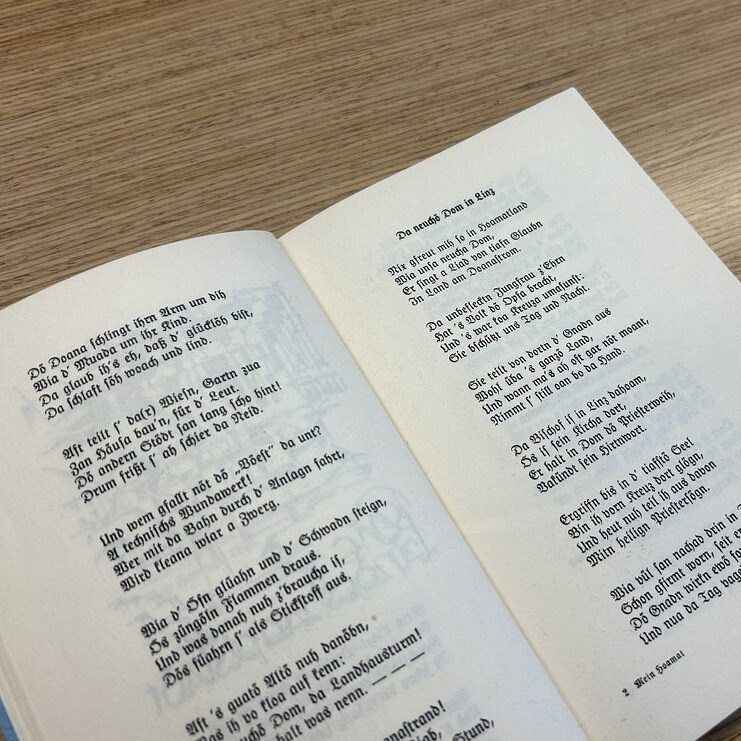 Dö Doana schlingt ihrn Arm um dih
Wia d' Muada um ihr Kind.
Da glaub ih's eh, daß d' glücklöh bist,
Da schlaft söh woach und lind.
Aft teilt s' da(r) Wiesn, Gartn zua
Zan Häusa bau'n, für d' Leut.
Dö andern Stödt, san lang scho hint!
Drum frißt s' ah schier da Neid.
Und wem gfallt nöt dö „Vöest" da unt?
A technischs Wundawerk!
Wer mit da Bahn durch d' Anlagn fahrt,
Wird kleana wiar a Zwerg.
Wia d' Ofn glüahn und d' Schwadn steign,
Ös züngöln Flammen draus.
Und was danah nuh z'braucha is,
Dös füahrn s' als Stickstoff aus.
Aft 's guatö Altö nuh danöbn,
Was ih vo kloa auf kenn:
neuchö Dom, da Landhausturm!
halt was nenn. — — —
Stund,
Da neuchö Dom in Linz
Nix gfreut mih so in Hoamatland
Wia unsa neucha Dom,
Er singt a Liad von tiafn Glaubn
In Land am Doanastrom.
Da unbeflecktn Jungfrau z'Ehrn
Hat 's Volk dö Opfa bracht,
Und 's war koa Kreuza umasunst:
Sie bschützt uns Tag und Nacht.
Sie teilt von dortn d' Gnadn aus
Wohl üba 's ganzö Land,
Und wann ma's ah oft gar nöt moant,
Nimmt s' still oan bo da Hand.
Da Bischof is in Linz dahoam,
Ös is sein Kircha dort,
Er halt in Dom dö Priesterweih,
Vakündt sein Hirtnwort.
Ergriffn bis in d' tiafstö Seel
Bin ih vorn Kreuz dort glögn,
Und heut nuh teil ih aus davon
Mein heilign Priestersögn.
Wia vüll san nachad drin in
Schon gfirmt worn, seit er
Dö Gnadn wirkn ewö
Und nua da Tag
2 Mein Hoamat